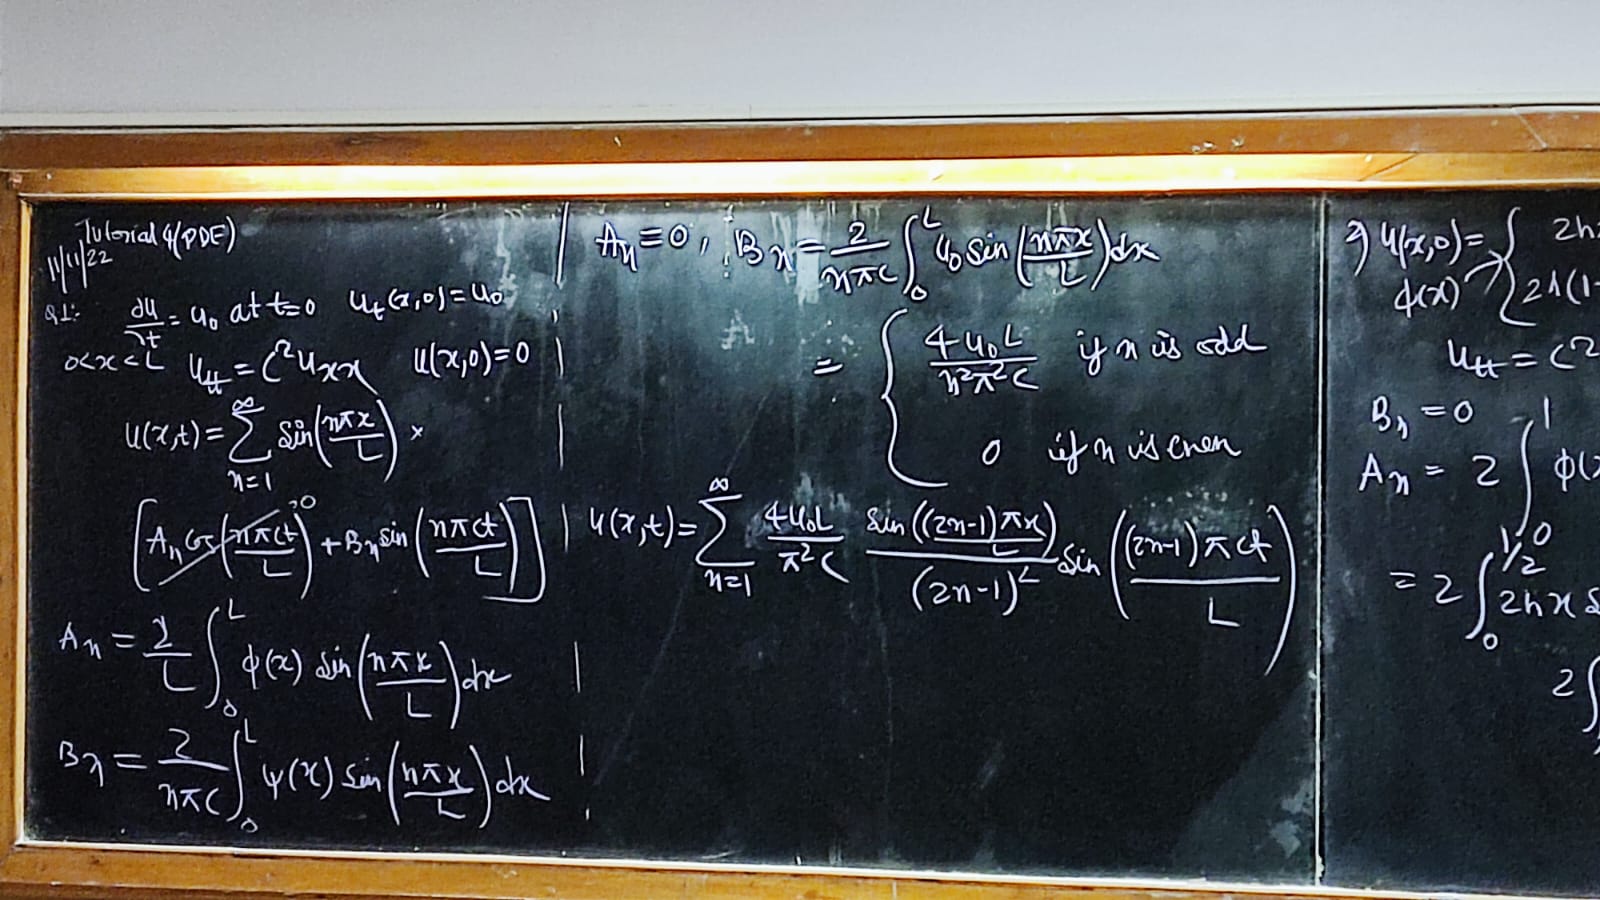 Tutorial 4(PDE)
11/11/22
Q1:- ∂u/∂t = u₀ at t=0 u_t(x,0) = u₀
0<x<L u_tt = c² u_xx u(x,0)=0
u(x,t) = ∑_{n=1}^{∞} sin(nπx/L) ×
[A_n cos(nπct/L) →0 + B_n sin(nπct/L)]
A_n = 2/L ∫₀^L φ(x) sin(nπx/L) dx
B_n = 2/(nπc) ∫₀^L ψ(x) sin(nπx/L) dx
A_n ≡ 0, B_n = 2/(nπc) ∫₀^L u₀ sin(nπx/L) dx
= { 4u₀L/(n²π²c) if n is odd
0 if n is even
u(x,t) = ∑_{n=1}^{∞} 4u₀L/(π²c) sin((2n-1)πx/L)/(2n-1)² sin((2n-1)πct/L)
2) u(x,0) = { 2h
φ(x) 2h(1-
u_tt = c²
B_n = 0
A_n = 2 ∫₀^1 φ(
= 2 ∫₀^{1/2} 2hx s
2 ∫